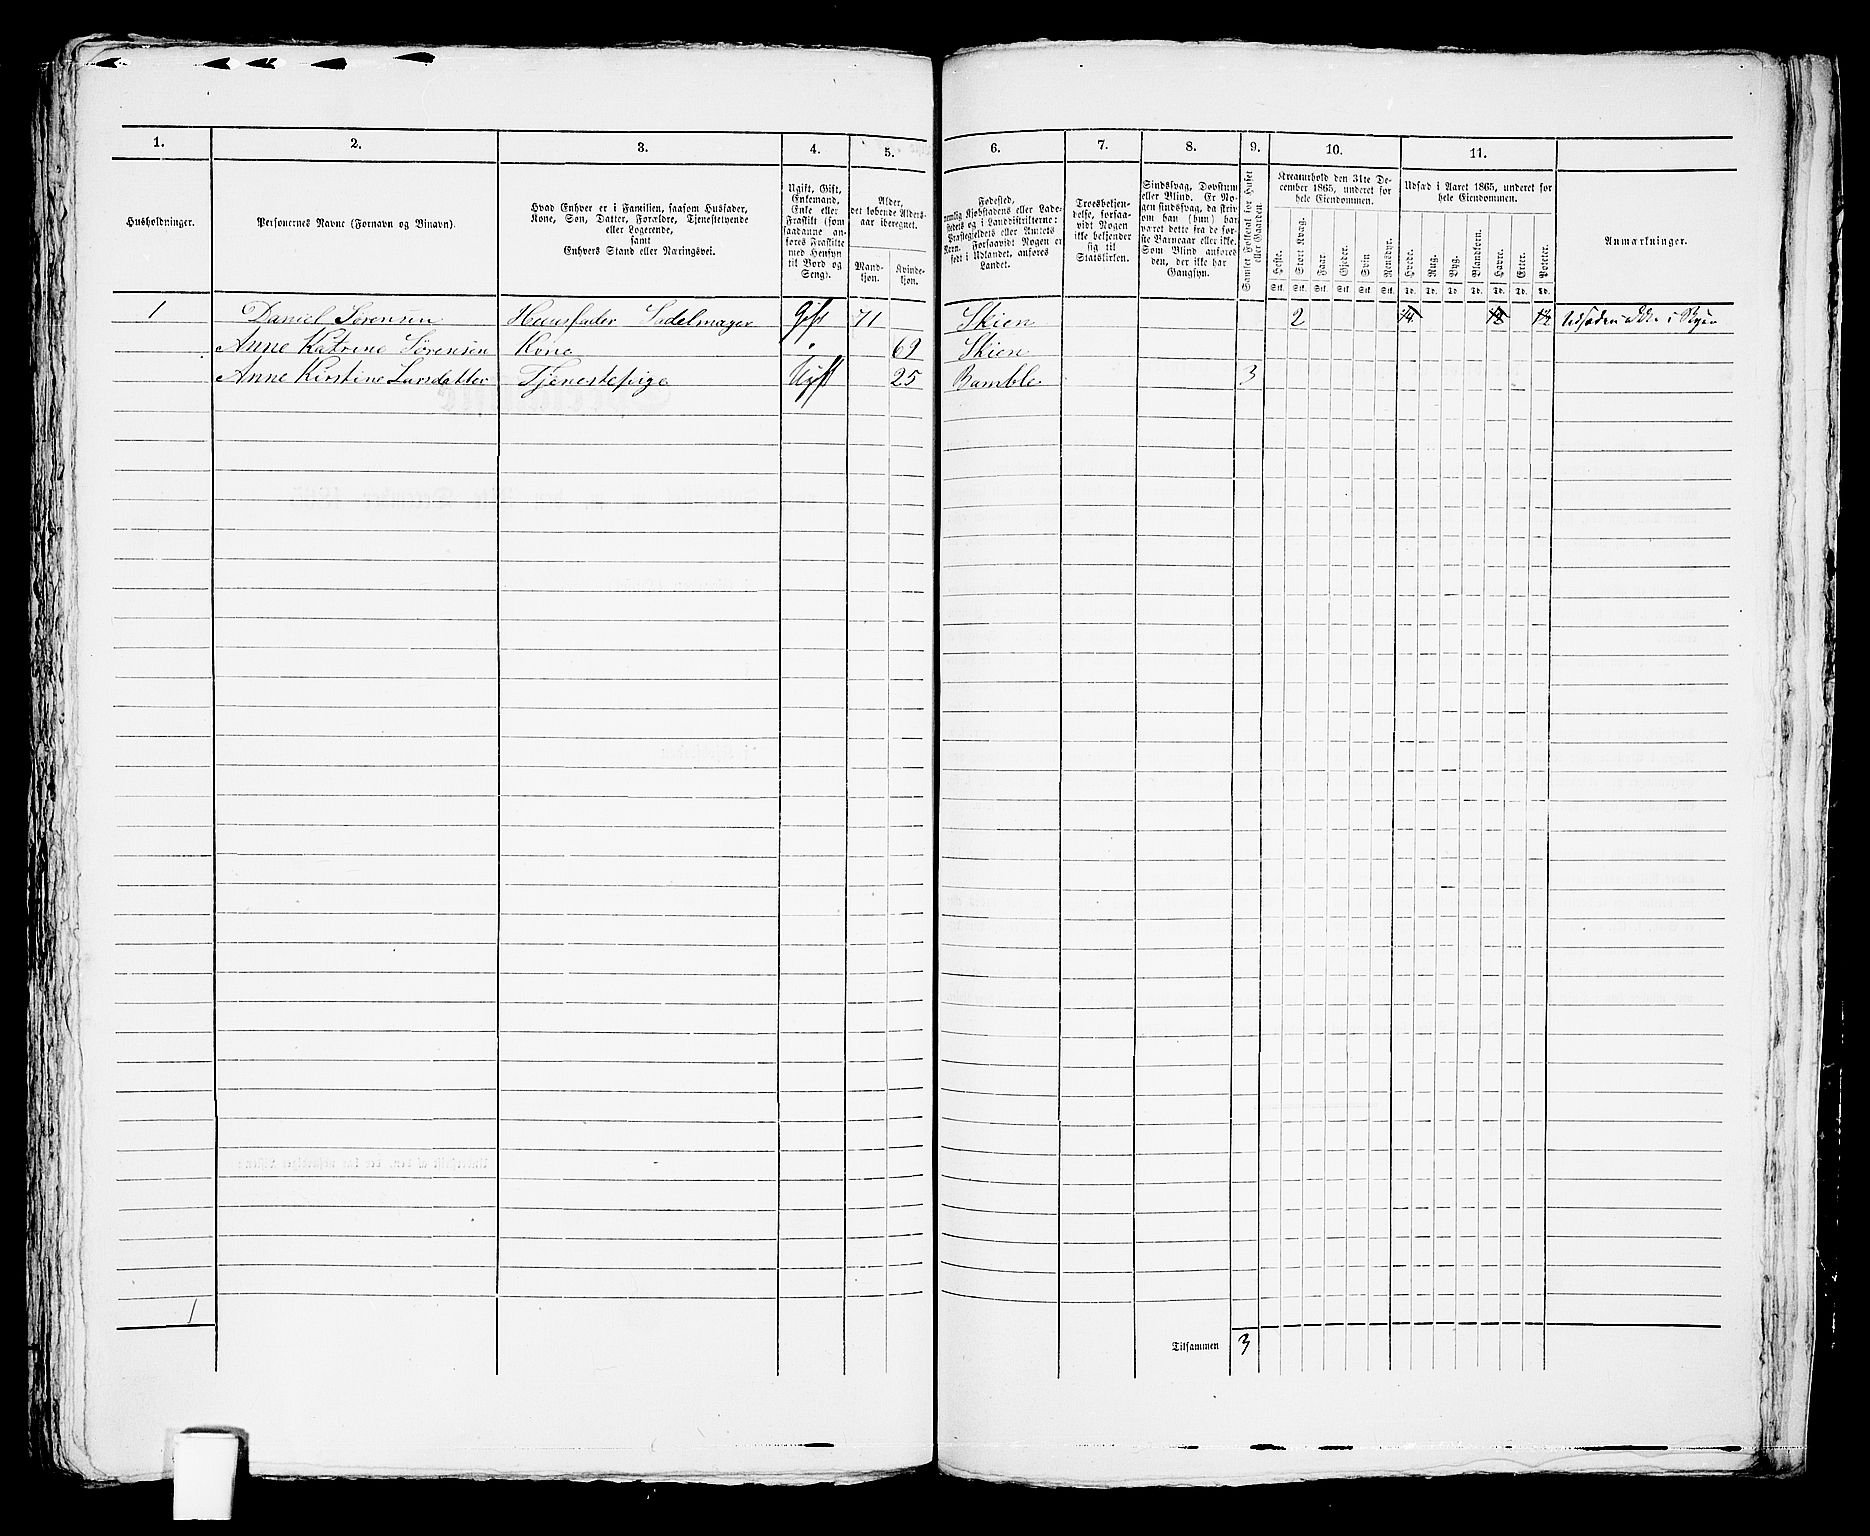 1. 2. 3. 4. 5. 6. 7. 8. 9. 10. 11.
Husholdninger.
Personernes Navne (Fornavn og Binavn).
Hvad Enhver er i Familien, saasom Husfader,
Kone, Søn, Datter, Forældre, Tjenestetyende
eller Logerende,
samt
Enhvers Stand eller Næringsvei.
Ugift, Gift,
Enkemand,
Enke eller
Fraskilt (som
saadanne an-
føres Fraskilte
med Hensyn
til Bord og
Seng).
Alder,
det løbende Alders-
aar iberegnet.
Mand-
kjøn.
Kvinde-
kjøn.
Fødested,
nemlig Kjøbstadens eller Lade-
stedets og i Landdistrikterne:
Præstegjeldets eller Amtets
Navn. Forsaavidt Nogen er
født i Udlandet, anføres
Landet.
Troesbekjen-
delse, forsaa-
vidt Nogen
ikke bekjender
sig til
Statskirken.
Sindssvag, Døvstum
eller Blind. Er No-
gen sindssvag, da skriv
om han (hun) har
været dette fra de før-
ste Barneaar eller ikke.
Som Blind anføres
den, der ikke har
Gangsyn.
Samlet Folketal for Huset
eller Gaarden.
Kreaturhold den 31te De-
cember 1865, underet for
hele Eiendommen.
Heste. Stort Kvæg. Faar. Gjeder. Svin. Rensdyr.
Stk. Stk. Stk. Stk. Stk. Stk.
Udsæd i Aaret 1865, underet for
hele Eiendommen.
Hvede. Rug. Byg. Blandkorn. Havre. Erter. Poteter.
Td. Td. Td. Td. Td. Td. Td.
Anmærkninger.
1 Daniel Sørensen Huusfader Sadelmager Gift 71 Skien 2 1/4 1/2 1 1/2 Udsæden ikke i Byen
Anne Katrine Sørensen Kone " 69 Skien
Anne Kirstine Larsdatter Tjenestepige Ugift 25 Bamble 3
1
Tilsammen 3